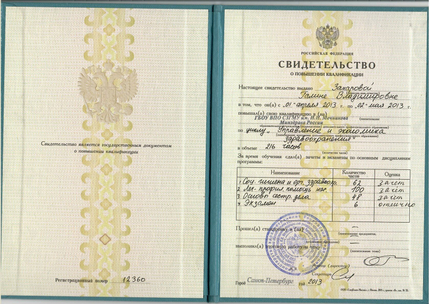 Свидетельство является государственным документом
о повышении квалификации
Регистрационный номер 12360
РОССИЙСКАЯ ФЕДЕРАЦИЯ
СВИДЕТЕЛЬСТВО
О ПОВЫШЕНИИ КВАЛИФИКАЦИИ
Настоящее свидетельство выдано Захаровой
Галине Владимировне
в том, что он(а) с „01“ апреля 2013 г. по „12“ мая 2013 г.
повышал(а) свою квалификацию в (на)
ГБОУ ВПО СЗГМУ им. И.И. Мечникова
Минздрава России
по циклу „Управление и экономика
здравоохранения“
в объёме 216 часов
За время обучения сдал(а) зачеты и экзамены по основным дисциплинам
программы:
Наименование Количество часов Оценка
1. Соц. гигиена и орг. здравоохр. 62 зачет
2. 100 зачет
3. Основы сестр. дела 48 зачет
4. Экзамен 6 отлично
Прошел(а) стажировку в (на)
выполнил(а)
Город Санкт-Петербург год 2013